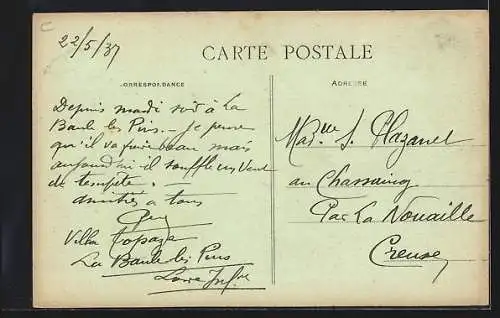 22/5/37
CARTE POSTALE
CORRESPONDANCE
ADRESSE
Depuis mardi soir à La
Baule les Pins. - Je pense
qu'il va faire beau mais
aujourd'hui il souffle un vent
de tempête.
amitiés a tous
Villa topaze
La Baule les Pins
Loire Infre
Melle S. Plazanet
au Chassaing
Par La Nouaille
Creuse